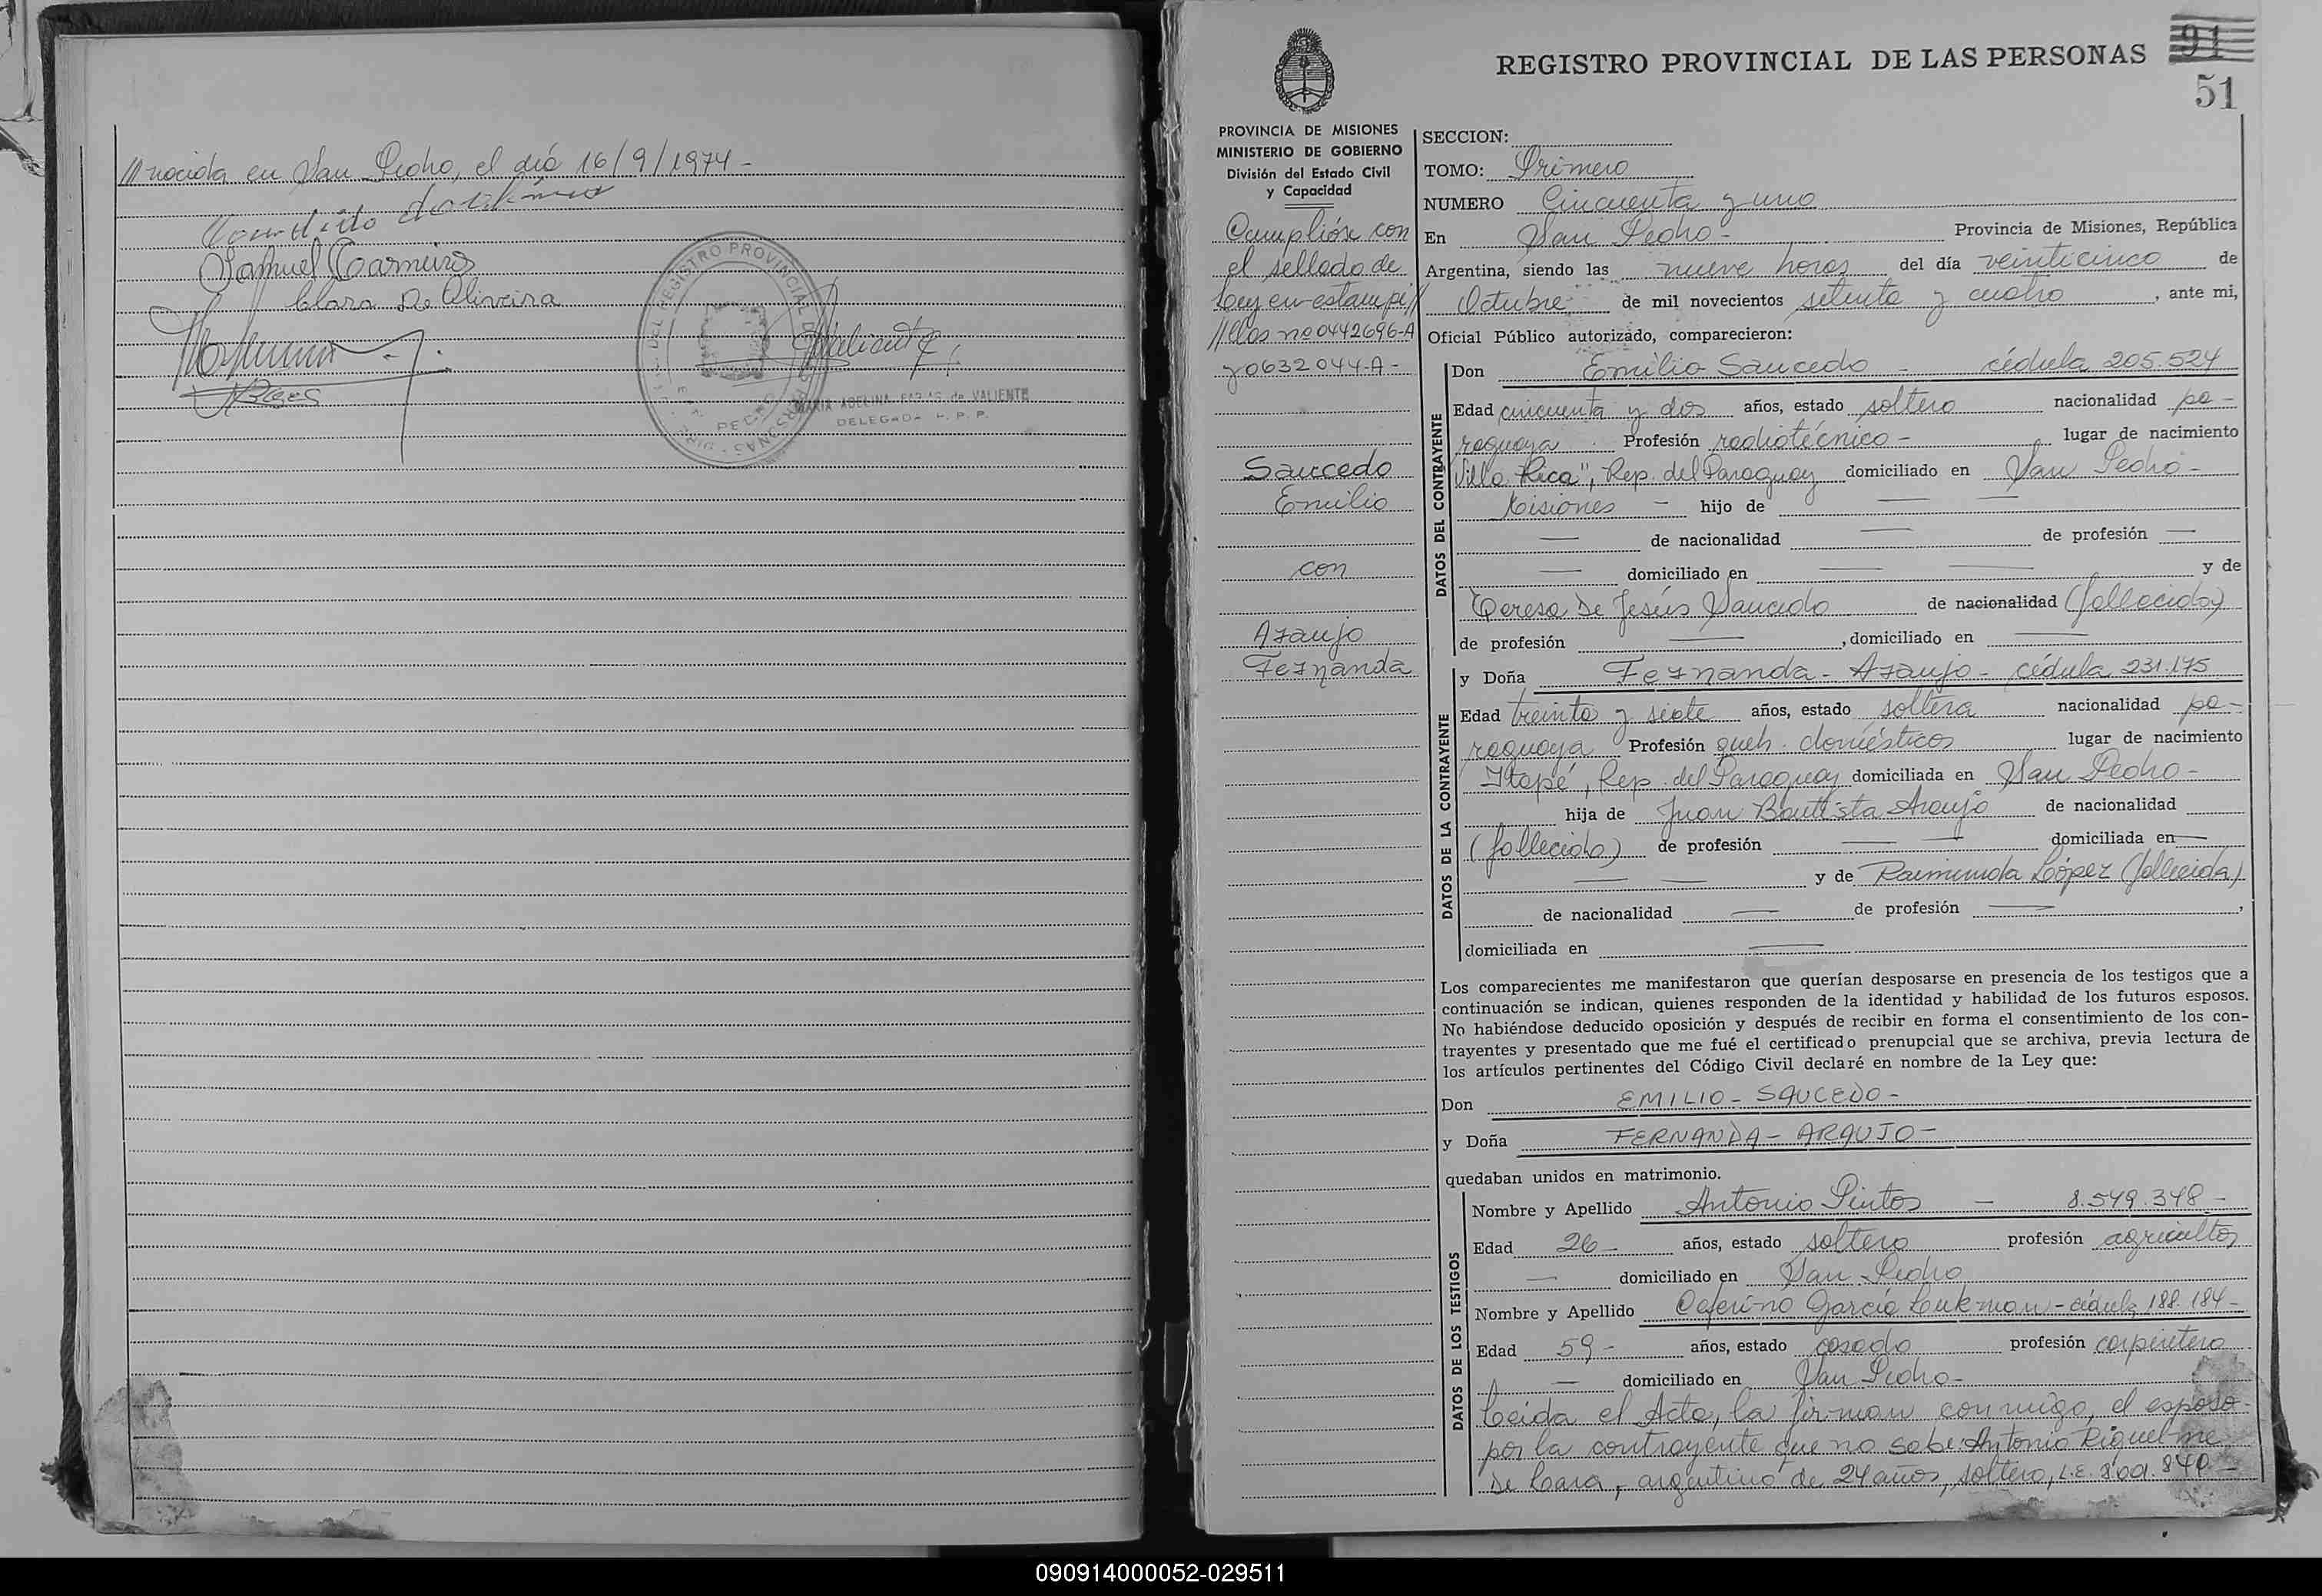 //nacida en San Pedro, el día 16/9/1974 -
Samuel Carneiro
Clara De Oliveira
DEL REGISTRO PROVINCIAL DE
MARIA ADELINA FARIAS de VALIENTE
DELEGADA R. P. P.
REGISTRO PROVINCIAL DE LAS PERSONAS
91
51
PROVINCIA DE MISIONES
MINISTERIO DE GOBIERNO
División del Estado Civil
y Capacidad
Cumplióse con
el sellado de
Ley en estampi//
//llas nº 0442696-A
y 0632044-A -
Saucedo
Emilio
con
Araujo
Fernanda
SECCION:
TOMO: Primero
NUMERO Cincuenta y uno
En San Pedro - Provincia de Misiones, República
Argentina, siendo las nueve horas del día veinticinco de
Octubre de mil novecientos setenta y cuatro, ante mi,
Oficial Público autorizado, comparecieron:
DATOS DEL CONTRAYENTE
Don Emilio Saucedo - cédula 205.524
Edad cincuenta y dos años, estado soltero nacionalidad pa-
raguaya Profesión radiotécnico - lugar de nacimiento
"Villa Rica", Rep. del Paraguay domiciliado en San Pedro -
Misiones - hijo de — —
— de nacionalidad — de profesión —
— domiciliado en — — y de
Teresa De Jesús Saucedo de nacionalidad (fallecida)
de profesión —, domiciliado en —
DATOS DE LA CONTRAYENTE
y Doña Fernanda - Araujo - cédula 231.175
Edad treinta y siete años, estado soltera nacionalidad pa-
raguaya Profesión queh. domésticos lugar de nacimiento
Itapé, Rep. del Paraguay domiciliada en San Pedro -
hija de Juan Bautista Araujo de nacionalidad
(fallecido) de profesión — — domiciliada en —
— — y de Raimunda López (fallecida)
de nacionalidad — de profesión —,
domiciliada en —
Los comparecientes me manifestaron que querían desposarse en presencia de los testigos que a
continuación se indican, quienes responden de la identidad y habilidad de los futuros esposos.
No habiéndose deducido oposición y después de recibir en forma el consentimiento de los con-
trayentes y presentado que me fué el certificado prenupcial que se archiva, previa lectura de
los artículos pertinentes del Código Civil declaré en nombre de la Ley que:
Don EMILIO - SAUCEDO -
y Doña FERNANDA - ARAUJO -
quedaban unidos en matrimonio.
DATOS DE LOS TESTIGOS
Nombre y Apellido Antonio Pintos - 8.549.348 -
Edad 26 - años, estado soltero profesión agricultor
— domiciliado en San Pedro
Nombre y Apellido Ceferino García - cédula 188.184 -
Edad 59 - años, estado casado profesión carpintero
— domiciliado en San Pedro -
Leída el Acta, la firman conmigo, el esposo
por la contrayente que no sabe: Antonio Riquelme
De Lara, argentino de 24 años, soltero, L.E. 8.001.840 -
090914000052-029511